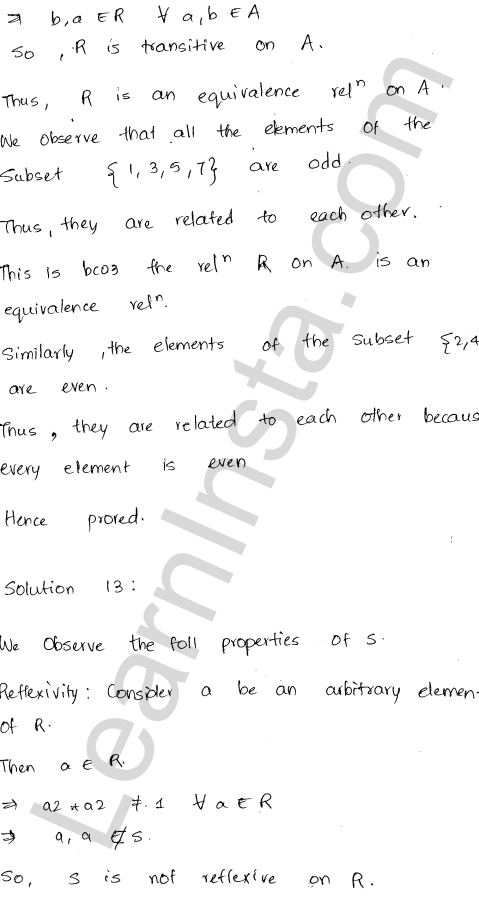 ⇒ b,a ∈R ∀ a,b ∈ A
So , R is transitive on A.
Thus, R is an equivalence relⁿ on A.
We observe that all the elements of the
Subset {1, 3, 5, 7} are odd.
Thus, they are related to each other.
This is bcoz the relⁿ R on A. is an
equivalence relⁿ.
Similarly , the elements of the subset {2,4
are even.
Thus , they are related to each other becaus
every element is even
Hence proved.
Solution 13 :
We Observe the foll properties of S.
Reflexivity : Consider a be an arbitrary elemen
of R.
Then a ∈ R.
⇒ a2 + a2 ≠ 1 ∀ a ∈ R
⇒ a, a ∉ S.
So, S is not reflexive on R.
LearnInsta.com